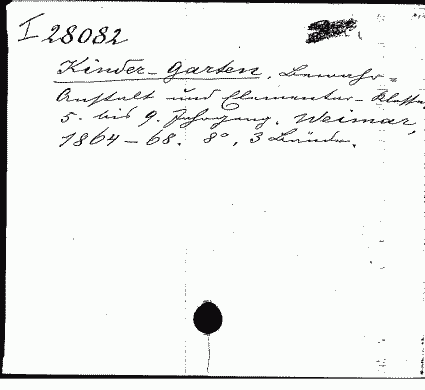 I 28082
Kinder-Garten, Bewahr-
Anstalt und Elementar-Klasse,
5. bis 9. Jahrgang. Weimar,
1864-68. 8°, 3 Bände.